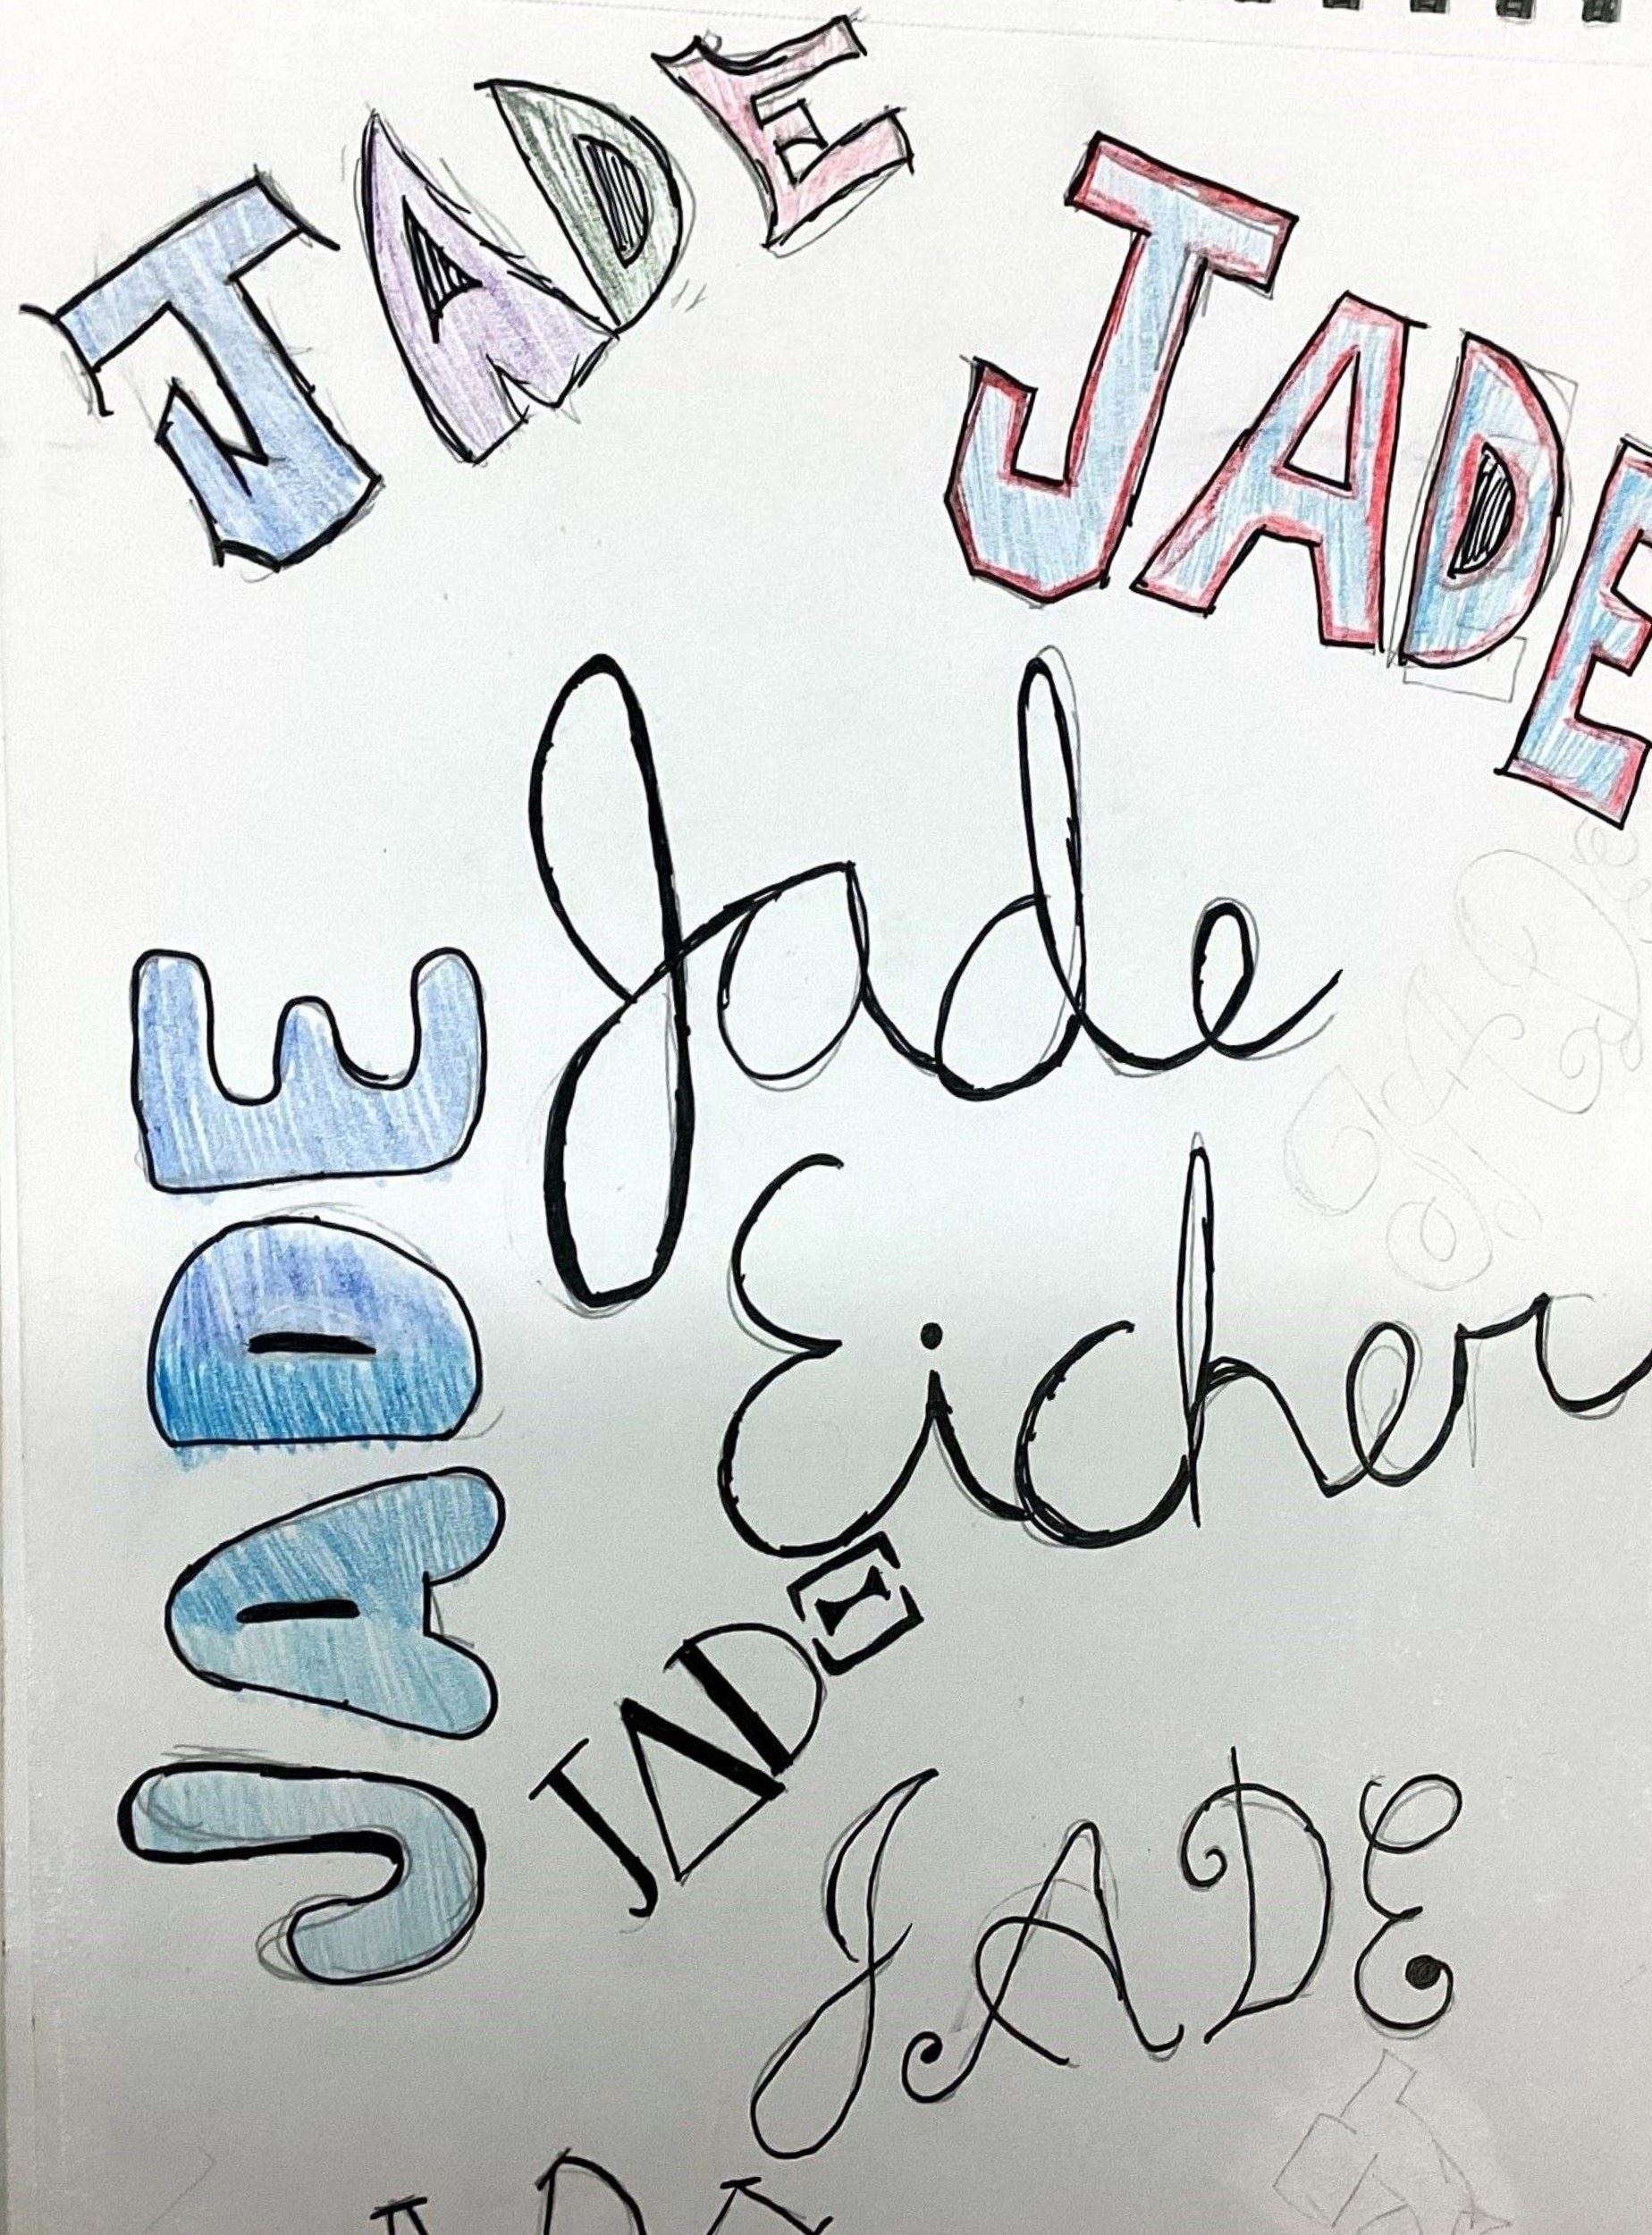 JADE
JADE
Jade
Eicher
JADE
JADE
JADE
JADE